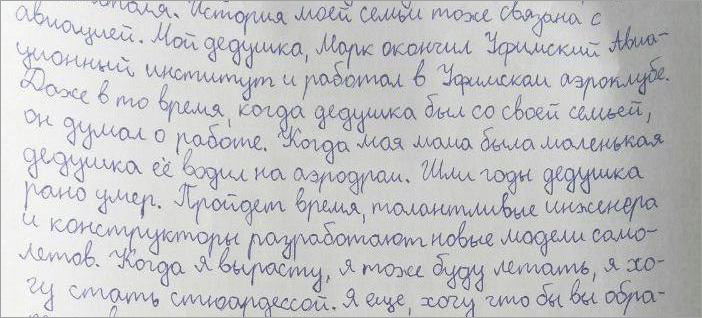 История моей семьи тоже связана с
авиацией. Мой дедушка, Марк окончил Уфимский Авиа-
ционный институт и работал в Уфимском аэроклубе.
Даже в то время, когда дедушка был со своей семьей,
он думал о работе. Когда мая мама была маленькая
дедушка её водил на аэродром. Шли годы дедушка
рано умер. Пройдет время, талантливые инженера
и конструкторы разработают новые модели само-
летов. Когда я вырасту, я тоже буду летать, я хо-
чу стать стюардессой. Я еще, хочу что бы вы обра-